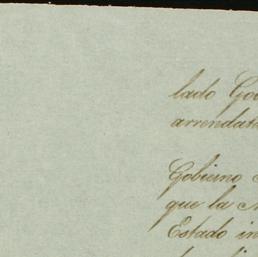 lado Gob
arrendata
Gobierno
que la
Estado in